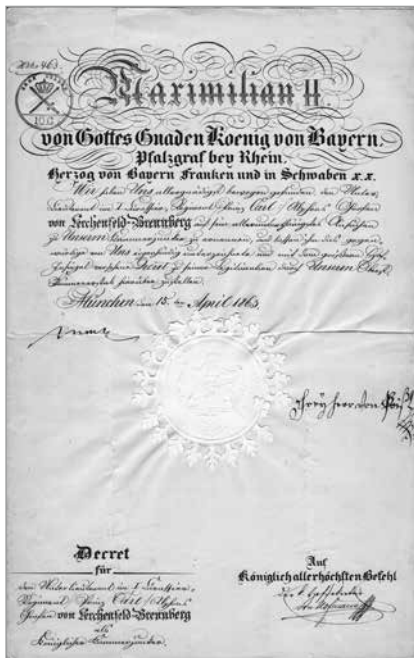 Maximilian II.
von Gottes Gnaden Koenig von Bayern,
Pfalzgraf bey Rhein,
Herzog von Bayern Franken und in Schwaben x.x.
Wir haben Uns allergnädigst bewogen gefunden, den Unter,
lieutenant im I. Cuirassier, Regiment Prinz Carl, Alphons Grafen
von Lerchenfeld-Brennberg auf sein allerunterthänigstes Ansuchen
zu Unserm Kammerjunker zu ernennen, und lassen ihm das gegen,
wärtige von Uns eigenhändig unterzeichnete und mit dem größeren
versehene Decret zu seiner Legitimation durch Unsern Oberst
Kämmererstab hierüber zustellen.
München den 15. ten April 1863.
Max
Freyherr von
Decret
für
den Unterlieutenant im I. Cuirassier,
Regiment Prinz Carl, Alphons
Grafen von Lerchenfeld-Brennberg
als
Königlicher Kammerjunker.
Auf
Königlich allerhöchsten Befehl